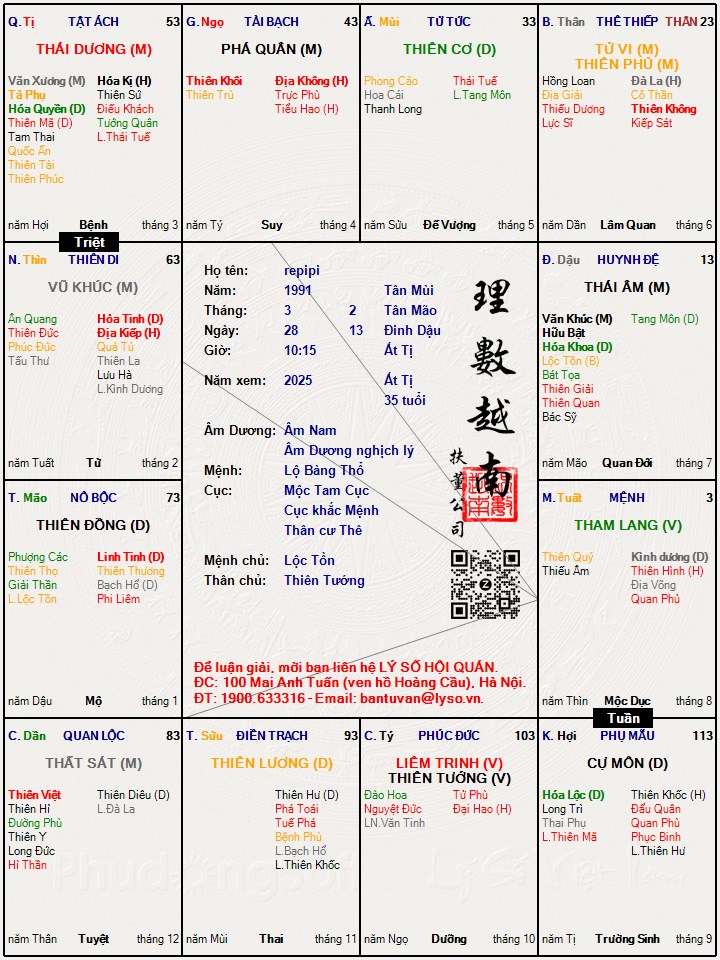 Q. Tị TẬT ÁCH 53
THÁI DƯƠNG (M)
Văn Xương (M) Hóa Kị (H)
Tả Phụ Thiên Sứ
Hóa Quyền (D) Điếu Khách
Thiên Mã (D) Tướng Quân
Tam Thai L.Thái Tuế
Quốc Ấn
Thiên Tài
Thiên Phúc
năm Hợi Bệnh tháng 3
G. Ngọ TÀI BẠCH 43
PHÁ QUÂN (M)
Thiên Khôi Địa Không (H)
Thiên Trù Trực Phù
Tiểu Hao (H)
năm Tý Suy tháng 4
Ấ. Mùi TỬ TỨC 33
THIÊN CƠ (D)
Phong Cáo Thái Tuế
Hoa Cái L.Tang Môn
Thanh Long
năm Sửu Đế Vượng tháng 5
B. Thân THÊ THIẾP THÂN 23
TỬ VI (M)
THIÊN PHỦ (M)
Hồng Loan Đà La (H)
Địa Giải Cô Thần
Thiếu Dương Thiên Không
Lực Sĩ Kiếp Sát
năm Dần Lâm Quan tháng 6
Triệt
N. Thìn THIÊN DI 63
VŨ KHÚC (M)
Ân Quang Hỏa Tinh (D)
Thiên Đức Địa Kiếp (H)
Phúc Đức Quả Tú
Tấu Thư Thiên La
Lưu Hà
L.Kình Dương
năm Tuất Tử tháng 2
Họ tên: repipi
Năm: 1991 Tân Mùi
Tháng: 3 2 Tân Mão
Ngày: 28 13 Đinh Dậu
Giờ: 10:15 Ất Tị
Năm xem: 2025 Ất Tị
35 tuổi
Âm Dương: Âm Nam
Âm Dương nghịch lý
Mệnh: Lộ Bàng Thổ
Cục: Mộc Tam Cục
Cục khắc Mệnh
Thân cư Thê
Mệnh chủ: Lộc Tồn
Thân chủ: Thiên Tướng
理數越南
扶董公司
Để luận giải, mời bạn liên hệ LÝ SỐ HỘI QUÁN.
ĐC: 100 Mai Anh Tuấn (ven hồ Hoàng Cầu), Hà Nội.
ĐT: 1900.633316 - Email: bantuvan@lyso.vn.
Đ. Dậu HUYNH ĐỆ 13
THÁI ÂM (M)
Văn Khúc (M) Tang Môn (D)
Hữu Bật
Hóa Khoa (D)
Lộc Tồn (B)
Bát Tọa
Thiên Giải
Thiên Quan
Bác Sỹ
năm Mão Quan Đới tháng 7
T. Mão NÔ BỘC 73
THIÊN ĐỒNG (D)
Phượng Các Linh Tinh (D)
Thiên Thọ Thiên Thương
Giải Thần Bạch Hổ (D)
L.Lộc Tồn Phi Liêm
năm Dậu Mộ tháng 1
M. Tuất MỆNH 3
THAM LANG (V)
Thiên Quý Kình dương (D)
Thiếu Âm Thiên Hình (H)
Địa Võng
Quan Phủ
năm Thìn Mộc Dục tháng 8
Tuần
C. Dần QUAN LỘC 83
THẤT SÁT (M)
Thiên Việt Thiên Diêu (D)
Thiên Hỉ L.Đà La
Đường Phù
Thiên Y
Long Đức
Hỉ Thần
năm Thân Tuyệt tháng 12
T. Sửu ĐIỀN TRẠCH 93
THIÊN LƯƠNG (D)
Thiên Hư (D)
Phá Toái
Tuế Phá
Bệnh Phù
L.Bạch Hổ
L.Thiên Khốc
năm Mùi Thai tháng 11
C. Tý PHÚC ĐỨC 103
LIÊM TRINH (V)
THIÊN TƯỚNG (V)
Đào Hoa Tử Phù
Nguyệt Đức Đại Hao (H)
LN.Văn Tinh
năm Ngọ Dưỡng tháng 10
K. Hợi PHỤ MẪU 113
CỰ MÔN (D)
Hóa Lộc (D) Thiên Khốc (H)
Long Trì Đẩu Quân
Thai Phụ Quan Phù
L.Thiên Mã Phục Binh
L.Thiên Hư
năm Tị Trường Sinh tháng 9